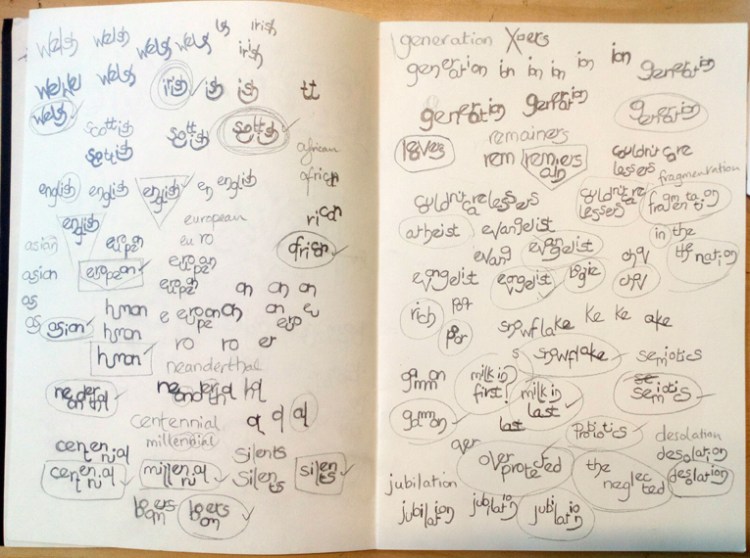 Welsh welsh welsh welsh sh irish
irish
welsh welsh irish ish ish tt
welsh
scottish scottish scottish
scottish african
english english english en english african
english european rican
asian european euro african
asian european european
as human european an an an
as asian human euro eu
human ro ro er
neanderthal
neanderthal neanderthal al
centennial a a al
millennial
centennial silents
centennial millennial silents silents
boomers boomers
generation Xers
generation ion ion ion ion ion generation
generation generation generation
leaver remainers
rem remainers couldn't care lessers
fragmentation
couldn't care lessers couldn't care lessers fragmentation
atheist evangelist in the
evang evangelist chav the nation
evangelist evangelist bogie chav
rich poor
poor snowflake ke ke ake
s snowflake semiotics
gammon milk in first! milk in last se semiotics
gammon last
probiotics desolation
over over protected the neglected desolation
jubilation desolation
jubilation jubilation jubilation